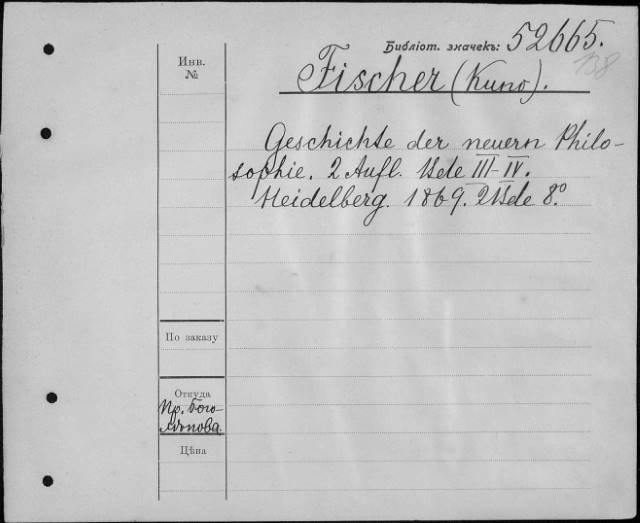 Библіот. значекъ: 52665.
138
Инв.
№
Fischer (Kuno).
Geschichte der neuern Philo-
sophie. 2 Aufl. Bde III–IV.
Heidelberg. 1869. 2 Bde 8º.
По заказу
Откуда
Пр. Бого-
лѣпова.
Цѣна